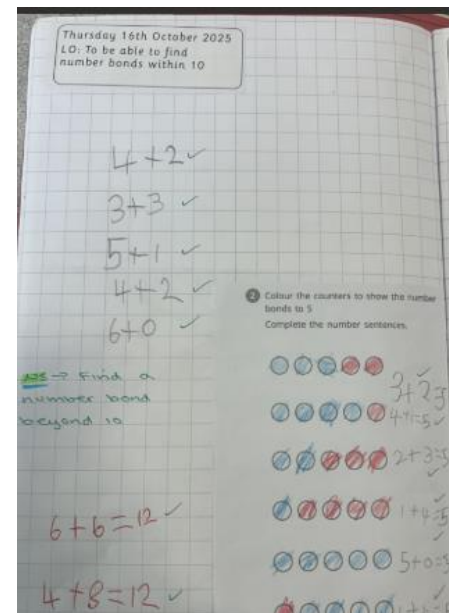 Thursday 16th October 2025
LO: To be able to find
number bonds within 10
4+2✓
3+3 ✓
5+1 ✓
4+2 ✓
6+0 ✓
→ Find a
number bond
beyond 10
6+6=12 ✓
4+8=12 ✓
2 Colour the counters to show the number
bonds to 5
Complete the number sentences.
3+2=5
4+1=5 ✓
2+3=5
1+4=5
5+0=5